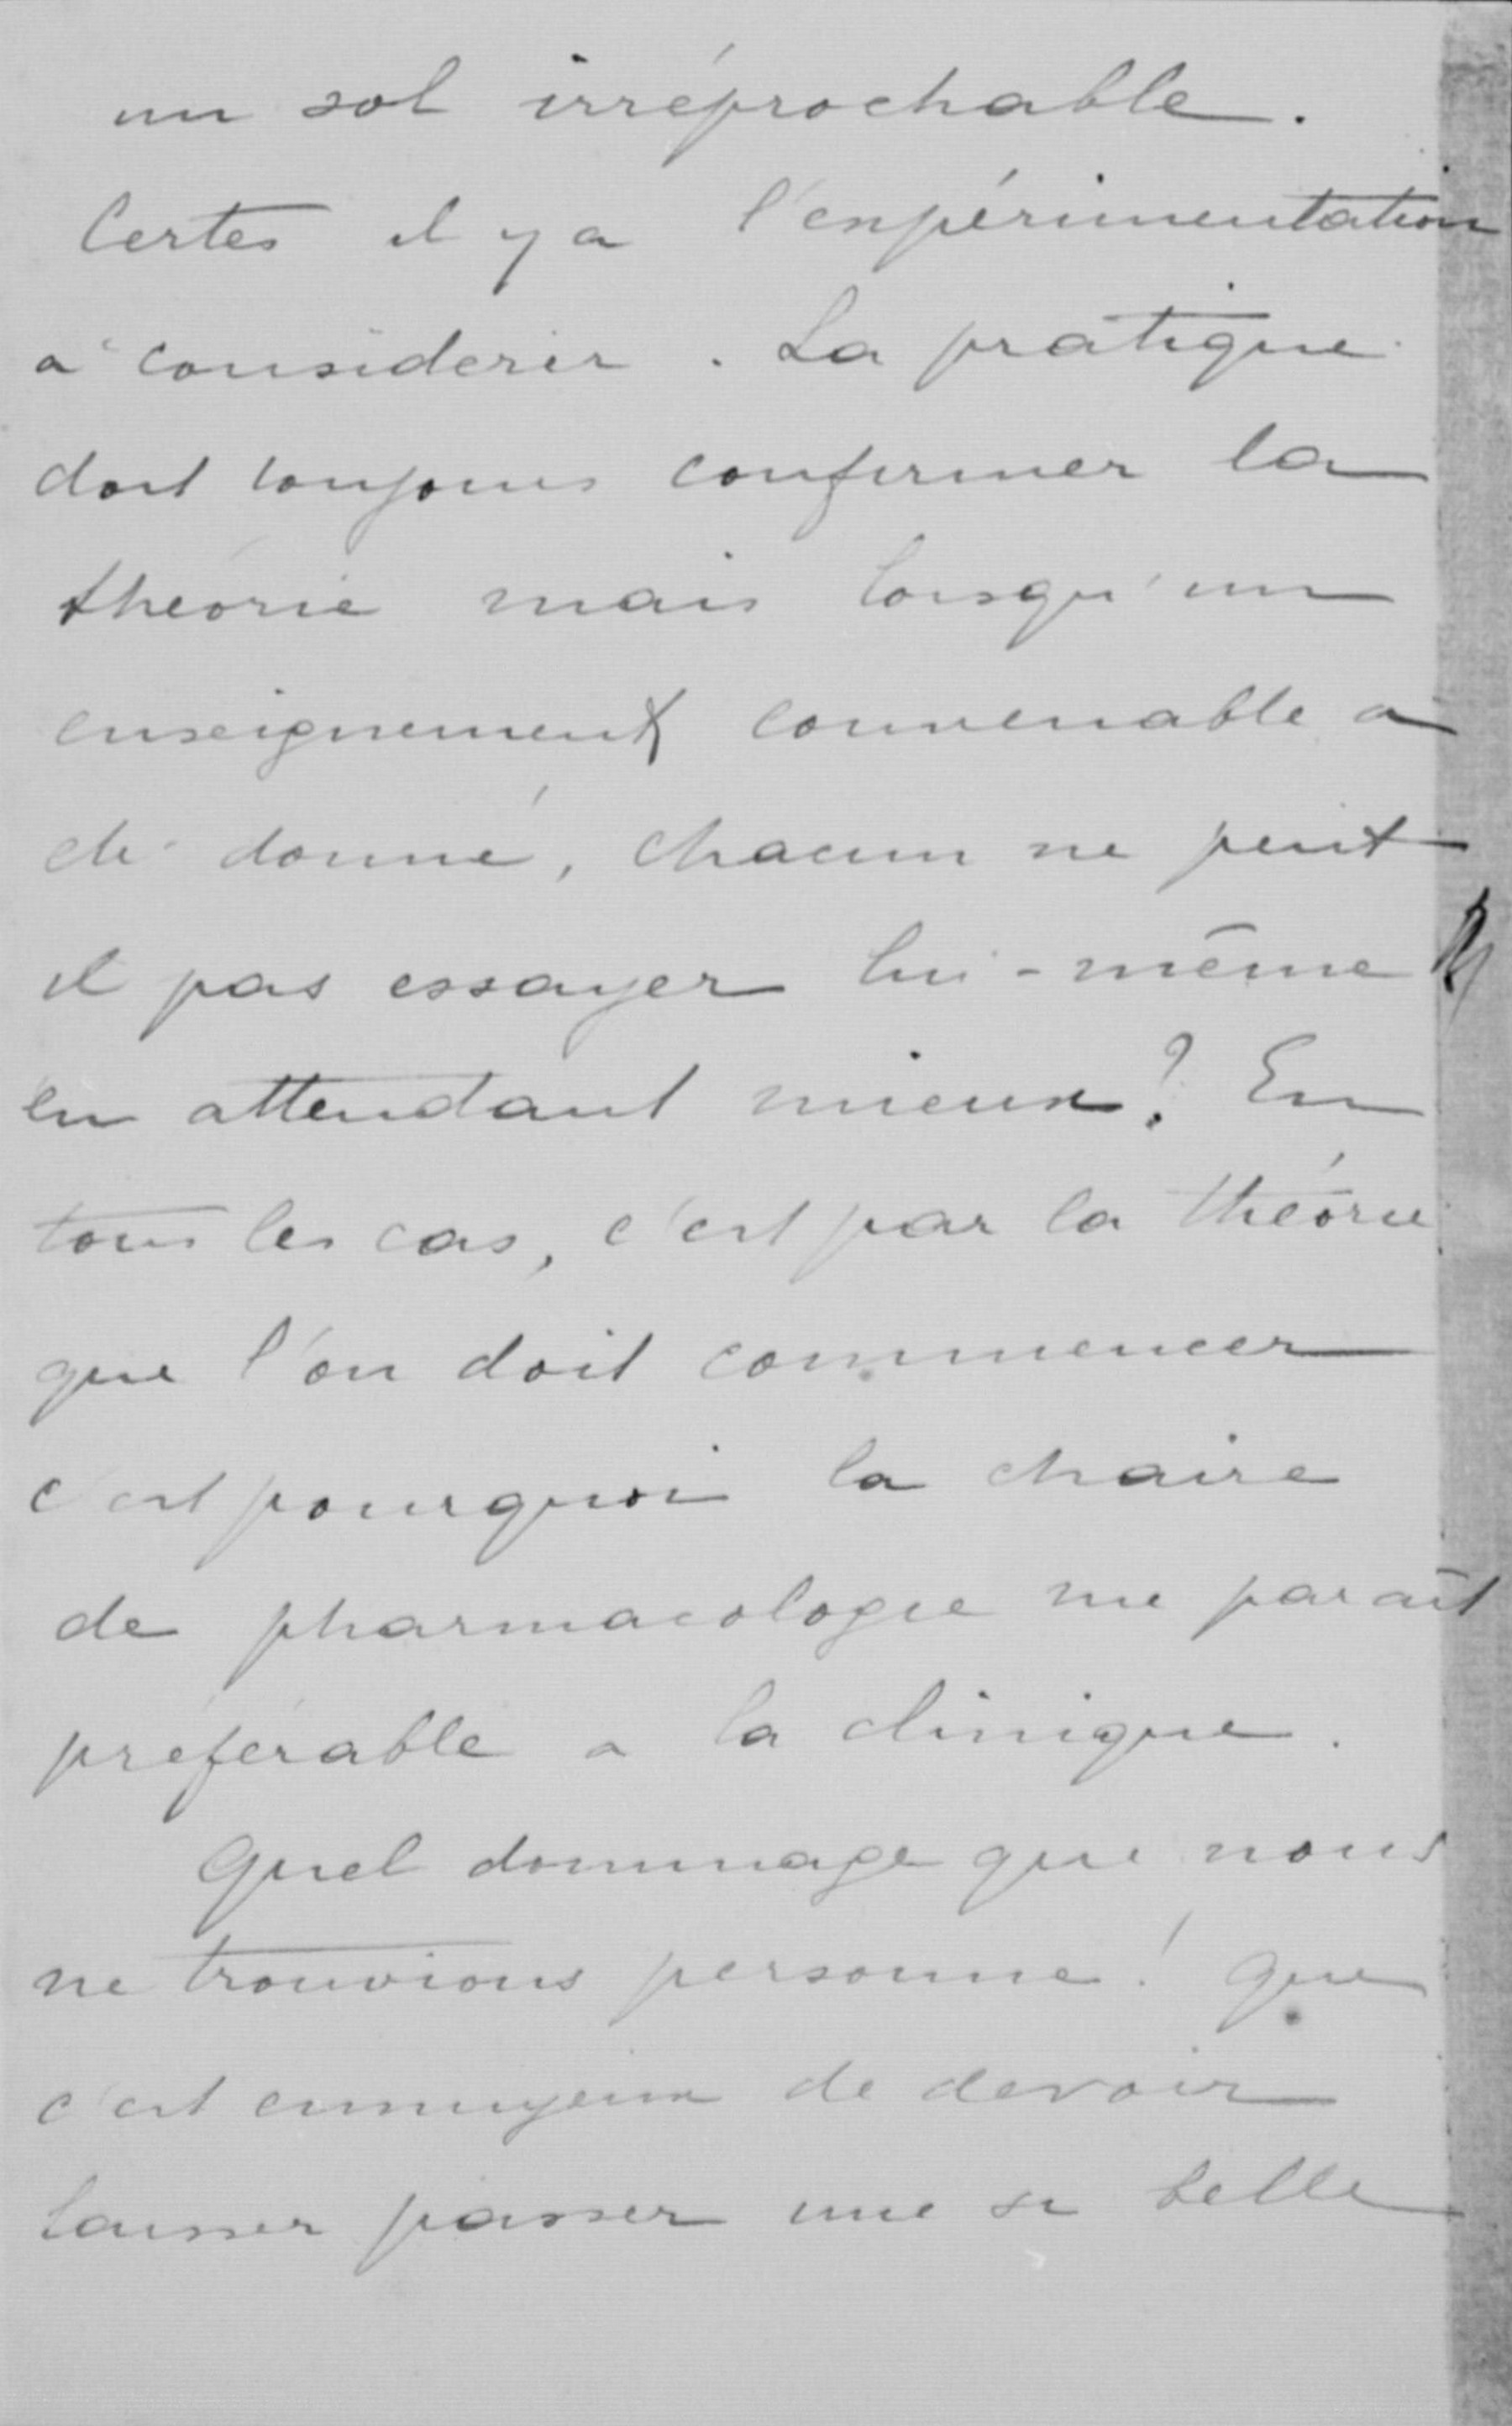 un sol irréprochable.
Certes il y a l'expérimentation
à considerer. La pratique
doit toujours confirmer la
théorie mais lorsqu'un
enseignement convenable a
été donné, chacun ne peut
il pas essayer lui-même
en attendant mieux? En
tous les cas, c'est par la théorie
que l'on doit commencer
c'est pourquoi la chaire
de pharmacologie me paraît
préférable a la clinique.
Quel dommage que nous
ne trouvions personne! que
c'est ennuyeux de devoir
laisser passer une si belle